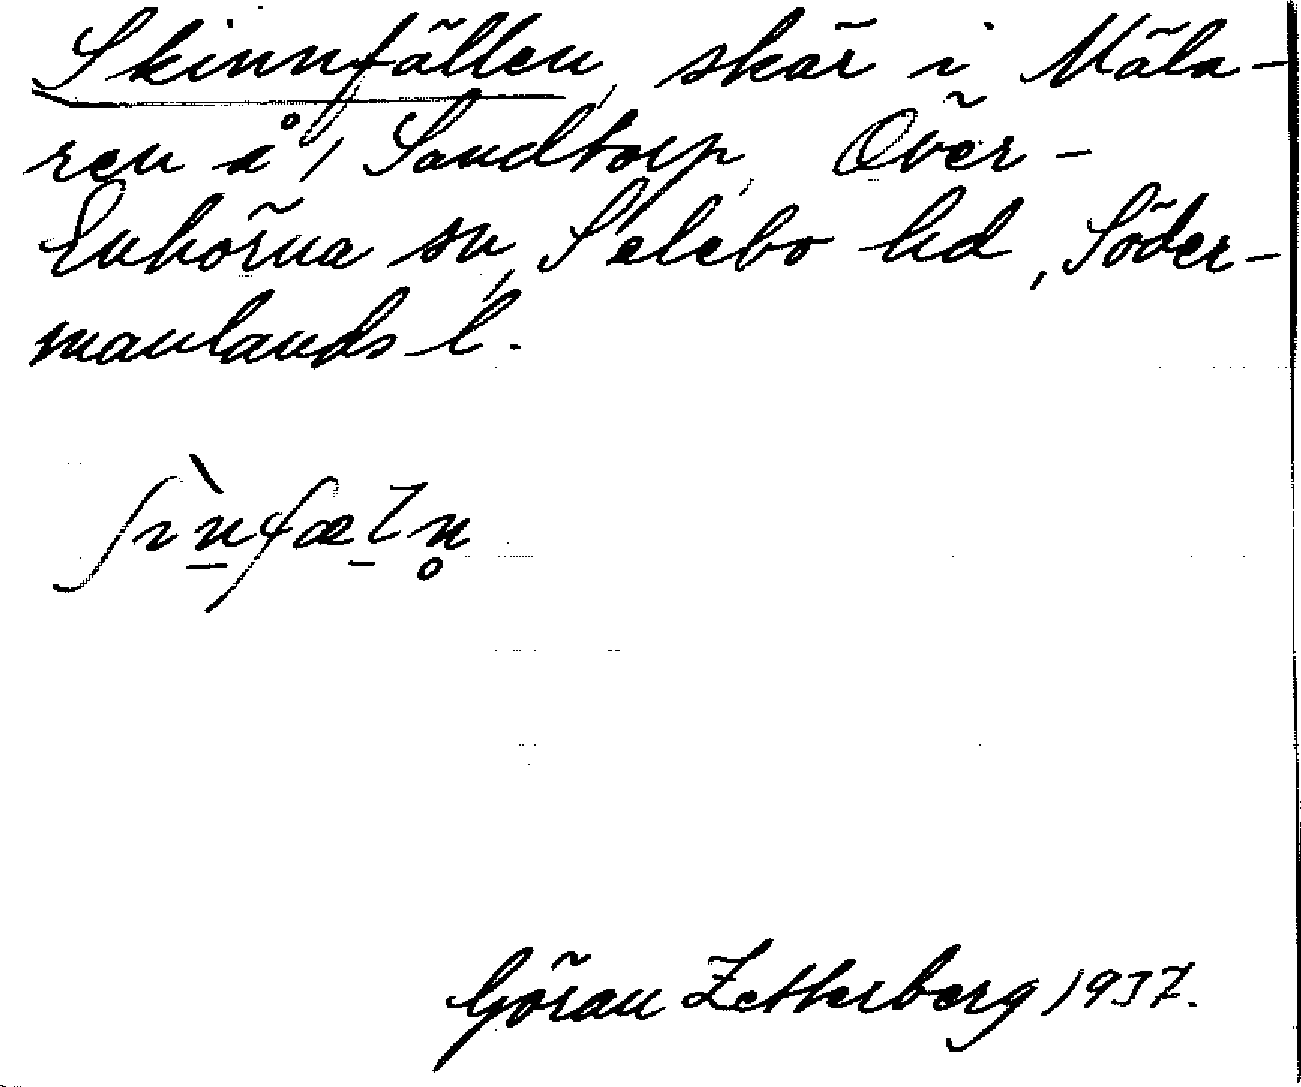 Skinnfällen, skär i Mäla-
ren å, Sandtorp, Över-
Enhörna sn, Selebo hd, Söder-
manlands l.
ʃɪ̀n̲fæl̲n̥
Göran Zetterberg 1937.